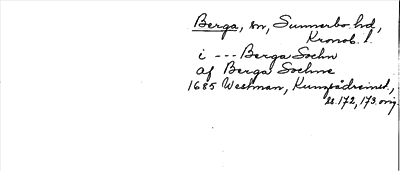 Berga, sn, Sunnerbo hd,
Kronob. l.
i --- Berga Sochn
af Berga Sochne
1685 Westman, Kunskådreinst.,
s. 172, 173. orig.